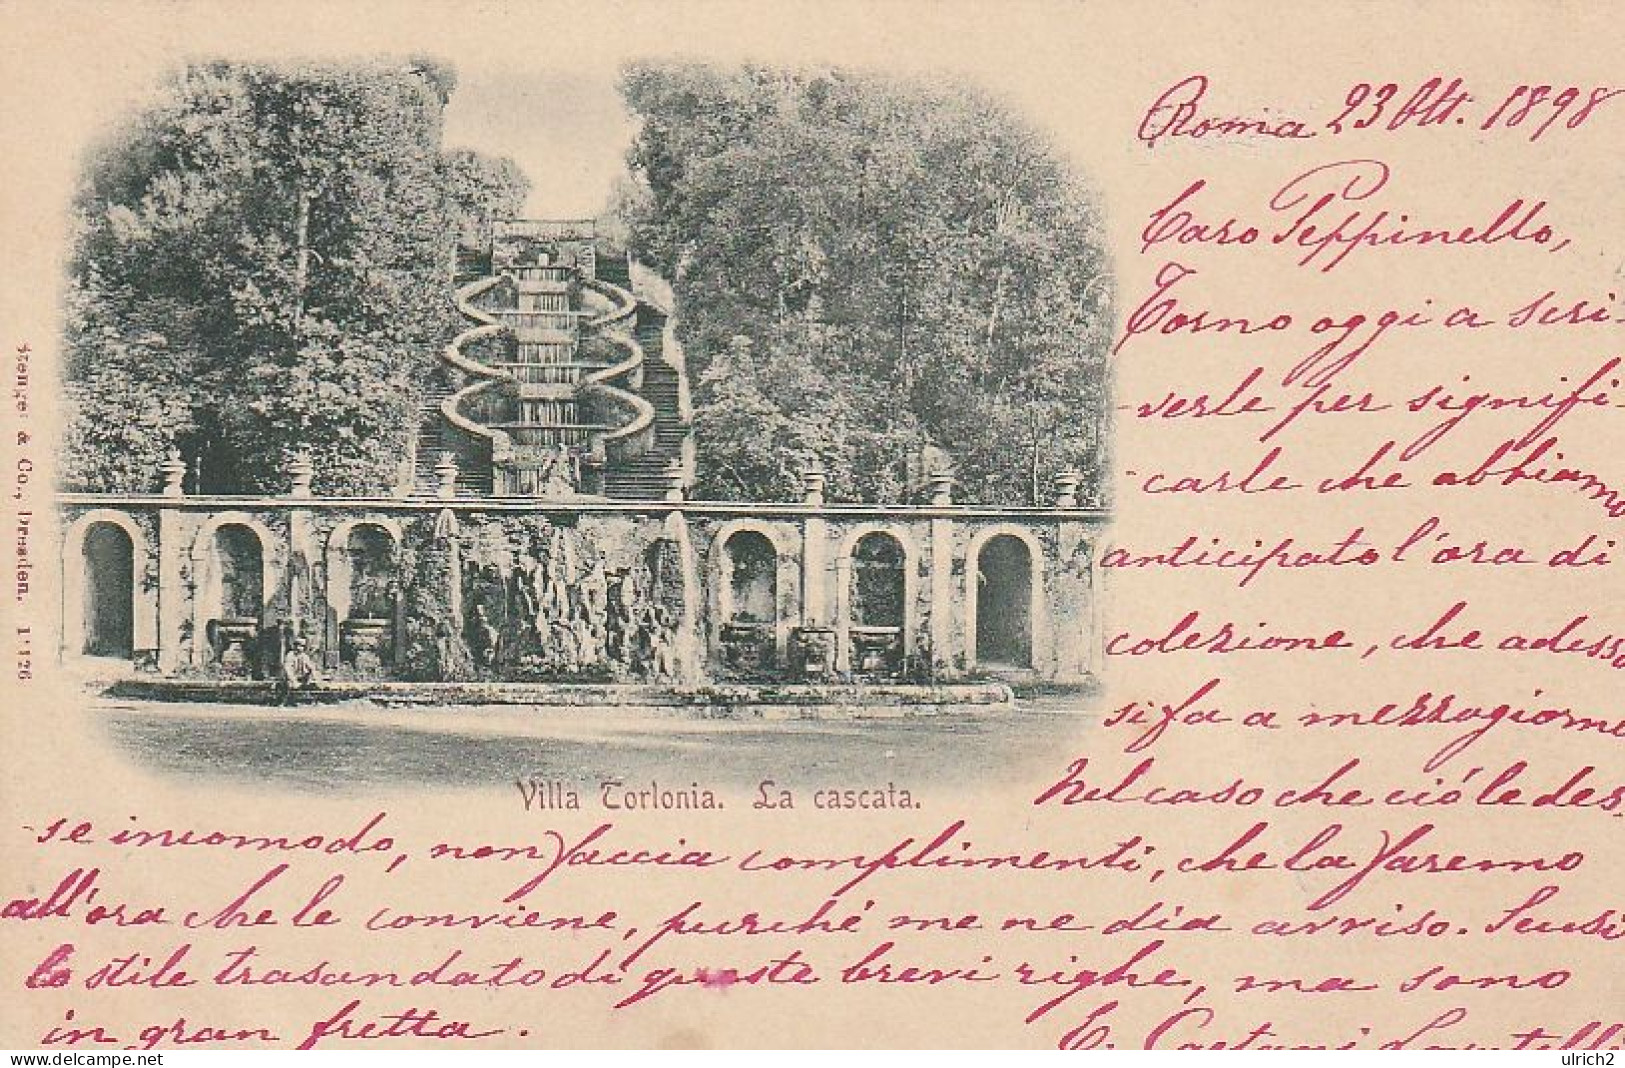 Roma 23 Ott. 1898
Caro Peppinello,
Torno oggi a scri-
-verle per signifi-
-carle che abbiamo
anticipato l'ora di
colezione, che adesso
si fa a mezzogiorno
Nel caso che ciò le des-
-se incomodo, non faccia complimenti, che la faremo
all'ora che le conviene, purché me ne dia avviso. Scusi
lo stile trasandato di queste brevi righe, ma sono
in gran fretta.
E. Caetani Lovatelli
Villa Torlonia. La cascata.
Stengel & Co., Dresden. 1126
delcampe.net
ulrich2